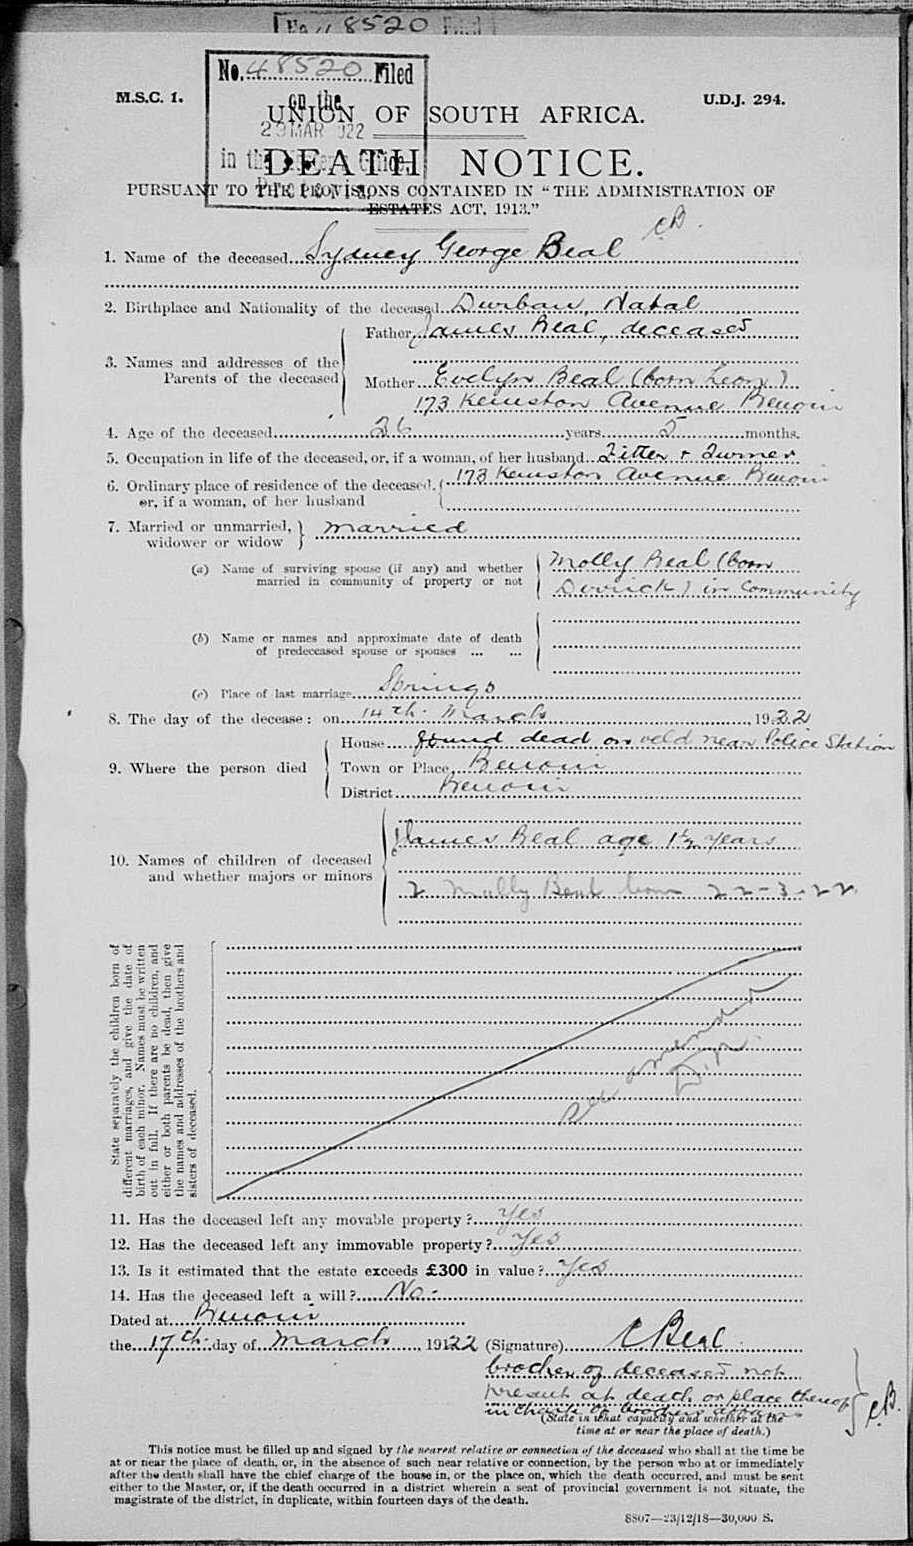 48520
No. 48520 Filed
on the
29 MAR 1922
M.S.C. 1.
U.D.J. 294.
UNION OF SOUTH AFRICA.
DEATH NOTICE.
PURSUANT TO THE PROVISIONS CONTAINED IN "THE ADMINISTRATION OF
ESTATES ACT, 1913."
CB.
1. Name of the deceased Sydney George Beal
2. Birthplace and Nationality of the deceased Durban, Natal
3. Names and addresses of the Parents of the deceased
Father James Beal, deceased
Mother Evelyn Beal (born Leon)
173 Kemston Avenue Benoni
4. Age of the deceased 26 years 5 months.
5. Occupation in life of the deceased, or, if a woman, of her husband Fitter & Turner
6. Ordinary place of residence of the deceased, or, if a woman, of her husband
173 Kemston Avenue Benoni
7. Married or unmarried, widower or widow married
(a) Name of surviving spouse (if any) and whether married in community of property or not
Molly Beal (born
Derrick) in Community
(b) Name or names and approximate date of death of predeceased spouse or spouses ... ...
(c) Place of last marriage Springs
8. The day of the decease: on 14th March 1922
9. Where the person died
House found dead on veld near Police Station
Town or Place Benoni
District Benoni
10. Names of children of deceased and whether majors or minors
James Beal age 1½ years
2 Molly Beal born 22-3-22
State separately the children born of
different marriages, and give the date of
birth of each minor. Names must be written
out in full. If there are no children, and
either or both parents be dead, then give
the names and addresses of the brothers and
sisters of deceased.
See amended
11. Has the deceased left any movable property? Yes
12. Has the deceased left any immovable property? Yes
13. Is it estimated that the estate exceeds £300 in value? Yes
14. Has the deceased left a will? No.
Dated at Benoni
the 17th day of March, 1922 (Signature) C Beal
brother of deceased not
present at death or place thereof
C.B.
(State in what capacity and whether at the
time at or near the place of death.)
This notice must be filled up and signed by the nearest relative or connection of the deceased who shall at the time be
at or near the place of death, or, in the absence of such near relative or connection, by the person who at or immediately
after the death shall have the chief charge of the house in, or the place on, which the death occurred, and must be sent
either to the Master, or, if the death occurred in a district wherein a seat of provincial government is not situate, the
magistrate of the district, in duplicate, within fourteen days of the death.
8807—23/12/18—30,000 S.